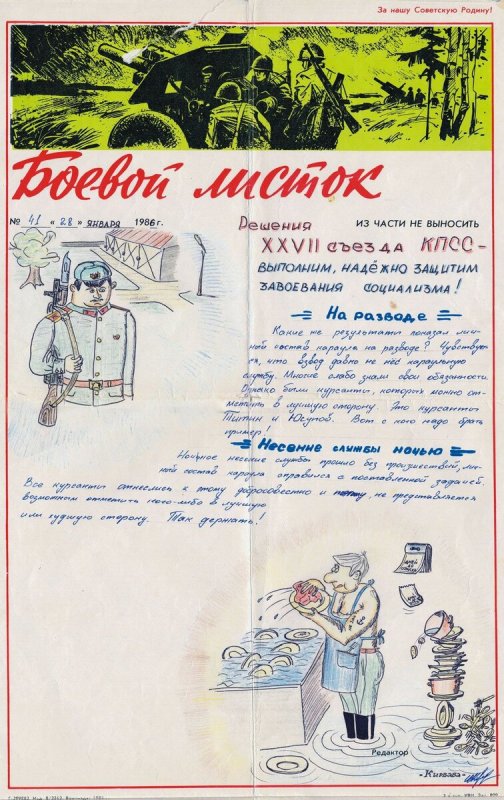 За нашу Советскую Родину!
Боевой листок
№ 41 «28» ЯНВАРЯ 1986 г.
ИЗ ЧАСТИ НЕ ВЫНОСИТЬ
Решения
XXVII съезда КПСС –
ВЫПОЛНИМ, НАДЁЖНО ЗАЩИТИМ
ЗАВОЕВАНИЯ СОЦИАЛИЗМА!
На разводе
Какие же результаты показал лич-
ный состав караула на разводе? Чувствует-
ся, что взвод давно не нёс караульную
службу. Многие слабо знали свои обязанности.
Однако были курсанты, которых можно от-
метить в лучшую сторону. Это курсанты
и Юсупов. Вот с кого надо брать
пример!
Несение службы ночью
Ночное несение службы прошло без происшествий, лич-
ный состав караула справился с поставленной задачей.
Все курсанты отнеслись к этому добросовестно и, не представляется
возможным отметить кого-либо в лучшую
или худшую сторону. Так держать!
Редактор